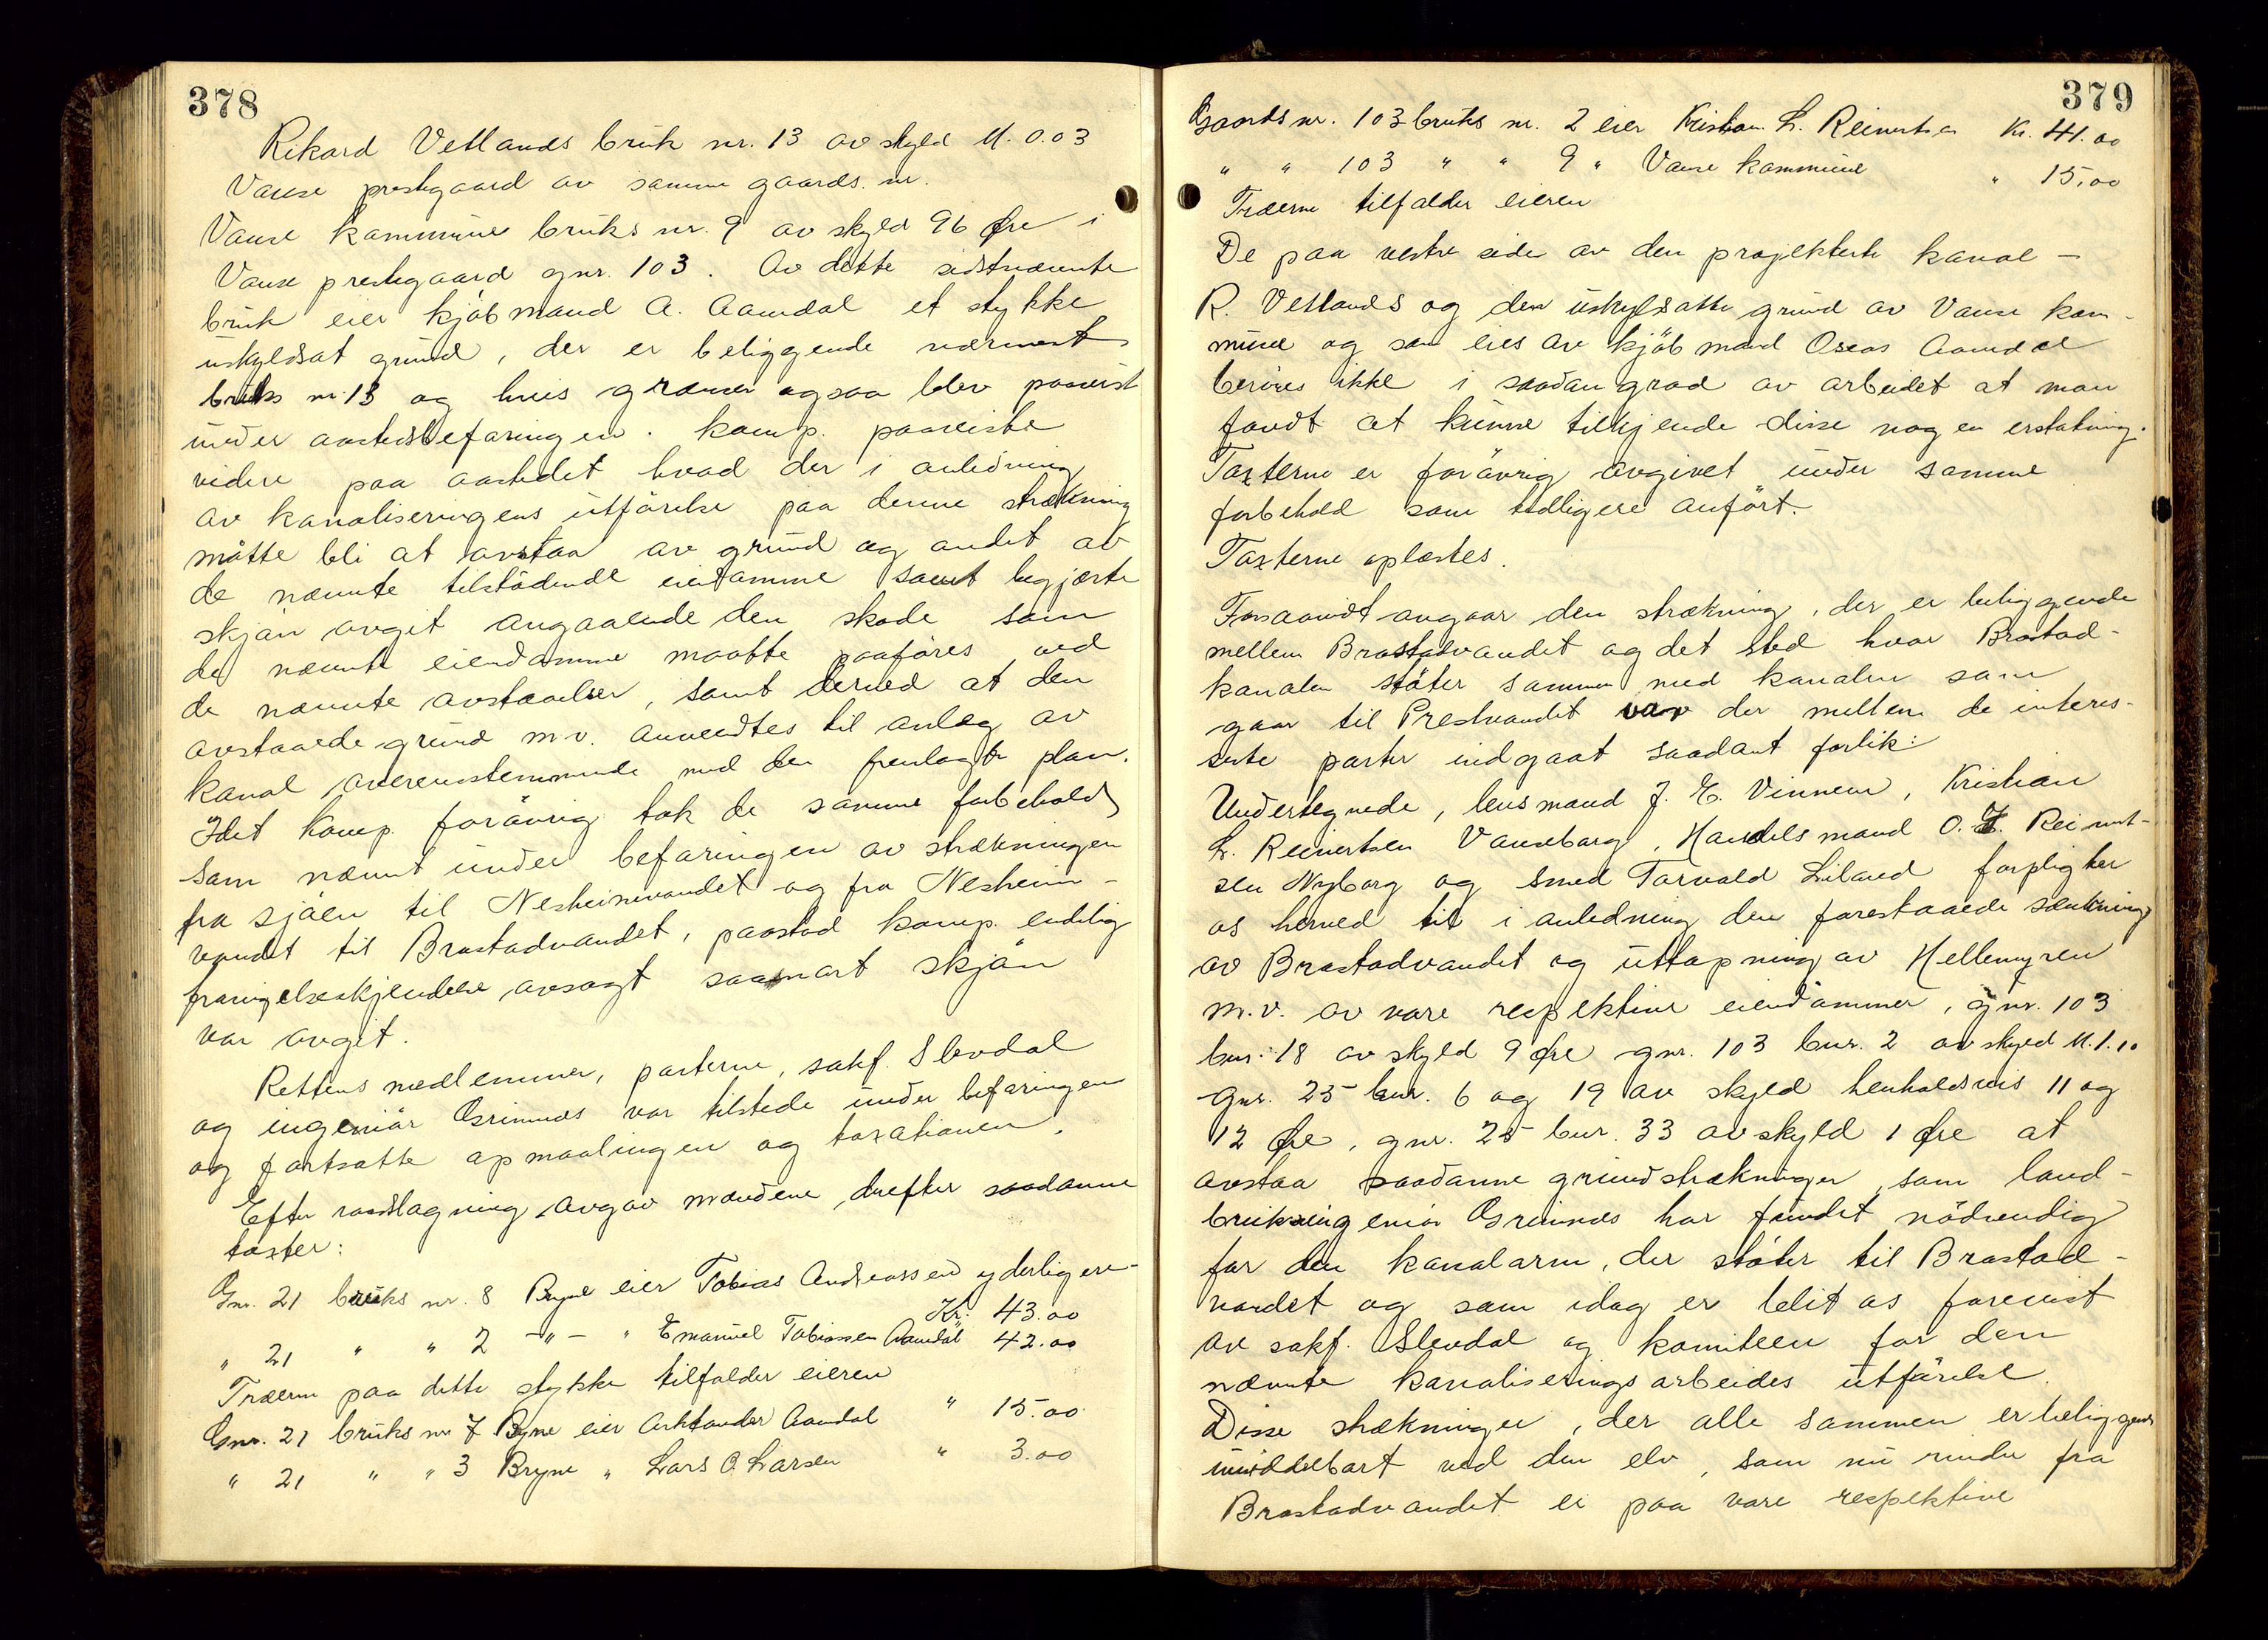 378
Rikard Vetlands bruk nr. 13 av skyld M. 0.03
Vanse prestegaard av samme gaards. nr.
Vanse kommune bruks nr. 9 av skyld 96 Øre i
Vanse prestegaard gnr. 103. Av dette sidstnævnte
bruk eier kjöbmand A. Aamdal et stykke
uskyldsat grund, der er beliggende nærmest
bruks nr. 13 og hvis grænser ogsaa blev paavist
under aastedsbefaringen. Komp. paaviste
videre paa aastedet hvad der i anledning
av kanaliseringens utförelse paa denne strækning
måtte bli at avstaa av grund og andet av
de nævnte tilstödende eiendomme samt begjærte
skjön avgit angaaende den skade som
de nævnte eiendomme maatte paaföres ved
de nævnte avstaaelser, samt derved at den
avstaaede grund m.v. anvendtes til anlæg av
kanal overensstemmende med den fremlagte plan.
Idet komp. forövrig tok de samme forbehold
som nævnt under befaringen av strækningen
fra sjöen til Nesheimvandet og fra Nesheim-
vandet til Brastadvandet, paastod komp. endelig
fravigelseskjendelse avsagt saasnart skjön
var avgit.
Rettens medlemmer, parterne, sakf. Slevdal
og ingeniör Grimnes var tilstede under befaringen
og fortsatte opmaalingen og taxationen.
Efter raadslagning avgav mændene derefter saadanne
taxter:
Gnr. 21 bruks nr. 8 Bryne eier Tobias Andreassen yderligere-
Kr. 43.00
" 21 " " 2 -"- " Emanuel Tobiassen Aamdal 42.00
Træerne paa dette stykke tilfalder eieren
Gnr. 21 bruks nr 7 Bryne eier Arktander Aamdal " 15.00
" 21 " " 3 Bryne " Lars O. Larsen " 3.00
379
Gaards nr. 103 bruks nr. 2 eier Kristian L. Reinertsen Kr. 41.00
" " 103 " " 9 " Vanse kommune " 15.00
Træerne tilfalder eieren
De paa vestre side av den projekterte kanal -
R. Vetlands og den uskyldsatte grund av Vanse kom-
mune og som eies av kjöbmand Oseas Aamdal
beröres ikke i saadan grad av arbeidet at man
fandt at kunne tilkjende disse nogen erstatning.
Taxterne er forövrig avgivet under samme
forbehold som tidligere anfört.
Taxterne oplæstes.
Forsaavidt angaar den strækning, der er beliggende
mellem Brastadvandet og det sted hvor Brastad-
kanalen stöter sammen med kanalen som
gaar til Prestvandet var der mellem de interes-
serte parter indgaat saadant forlik:
Undertegnede, lensmand J. E. Vinnem, Kristian
L. Reinertsen Vanseborg, Handelsmand O. J. Reinert-
sen Nyborg og smed Torvald Liland forpligter
os herved til i anledning den forestaaede sænkning
av Brastadvandet og uttapning av Hellemyren
m.v. av vore respektive eiendommer, gnr. 103
bnr. 18 av skyld 9 Øre gnr. 103 bnr. 2 av skyld M. 1.10
gnr. 25 bnr. 6 og 19 av skyld henholdsvis 11 og
12 Øre, gnr. 25 bnr. 33 av skyld 1 Øre at
avstaa saadanne grundstrækninger som land-
bruksingeniör Grimnes har fundet nödvendig
for den kanalarm, der stöter til Brastad-
vandet og som idag er blit os forevist
av sakf. Slevdal og komiteen for den
nævnte kanaliserings arbeides utförelse.
Disse strækninger, der alle sammen er beliggende
umiddelbart ved den elv, som nu rinder fra
Brastadvandet er paa vore respektive